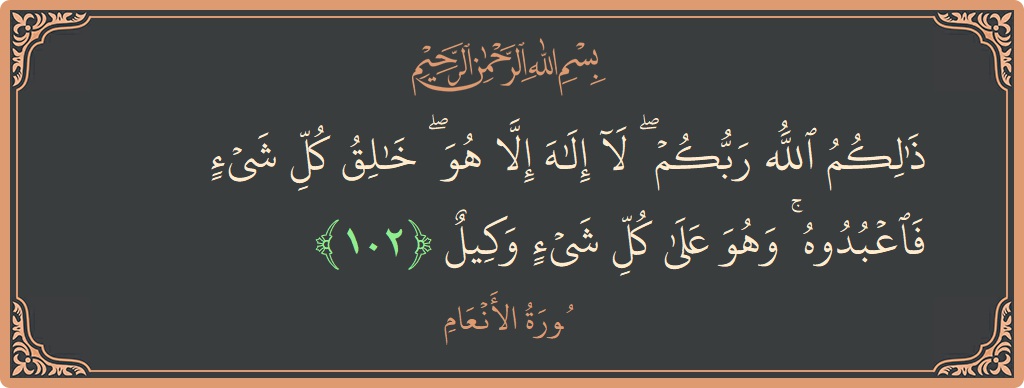 بِسْمِ اللهِ الرَّحْمٰنِ الرَّحِيْمِ
ذَٰلِكُمُ ٱللَّهُ رَبُّكُمْ ۖ لَآ إِلَٰهَ إِلَّا هُوَ ۖ خَٰلِقُ كُلِّ شَىْءٍ
فَٱعْبُدُوهُ ۚ وَهُوَ عَلَىٰ كُلِّ شَىْءٍ وَكِيلٌ ﴿١٠٢﴾
سُورَةُ الأَنْعَامِ